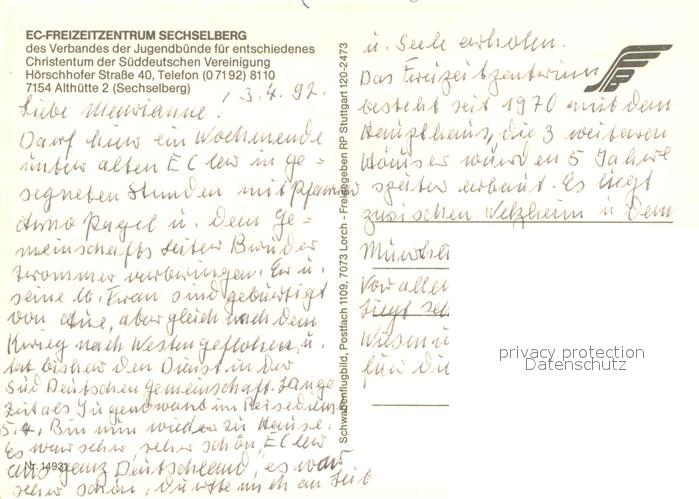 EC-FREIZEITZENTRUM SECHSELBERG
des Verbandes der Jugendbünde für entschiedenes
Christentum der Süddeutschen Vereinigung
Hörschhofer Straße 40, Telefon (0 71 92) 81 10
7154 Althütte 2 (Sechselberg)
, 3.4.92.
Liebe Marianne!
Darf hier ein Wochenende
unter alten EC lern in ge=
segneten Stunden mit Pfarrer
Arno Pagel u. dem Ge=
meinschafts Leiter Bruder
verbringen. Er u.
seine lb. Frau sind gebürtigt
von Aue, aber gleich nach dem
Krieg nach Westen geflohen, u.
tat bisher den Dienst in der
Süd Deutschen Gemeinschaft. Lange
Zeit als Jugendwart im Reisedienst
5.4. Bin nun wieder zu Hause.
Es war sehr, sehr schön, EC ler
aus ganz Deutschland, es war
sehr schön, durfte mich an Leib
Nr. 1493
Schwabenflugbild, Postfach 1109, 7073 Lorch - Freigegeben RP Stuttgart 120-2473
u. Seele erholen.
Das Freizeitzentrum
besteht seit 1970 mit dem
Haupthaus, die 3 weiteren
Häuser wurden 5 Jahre
später erbaut. Es liegt
zwischen Welzheim u dem
Vor allem
liegt
Wiesen u
für die
privacy protection
Datenschutz